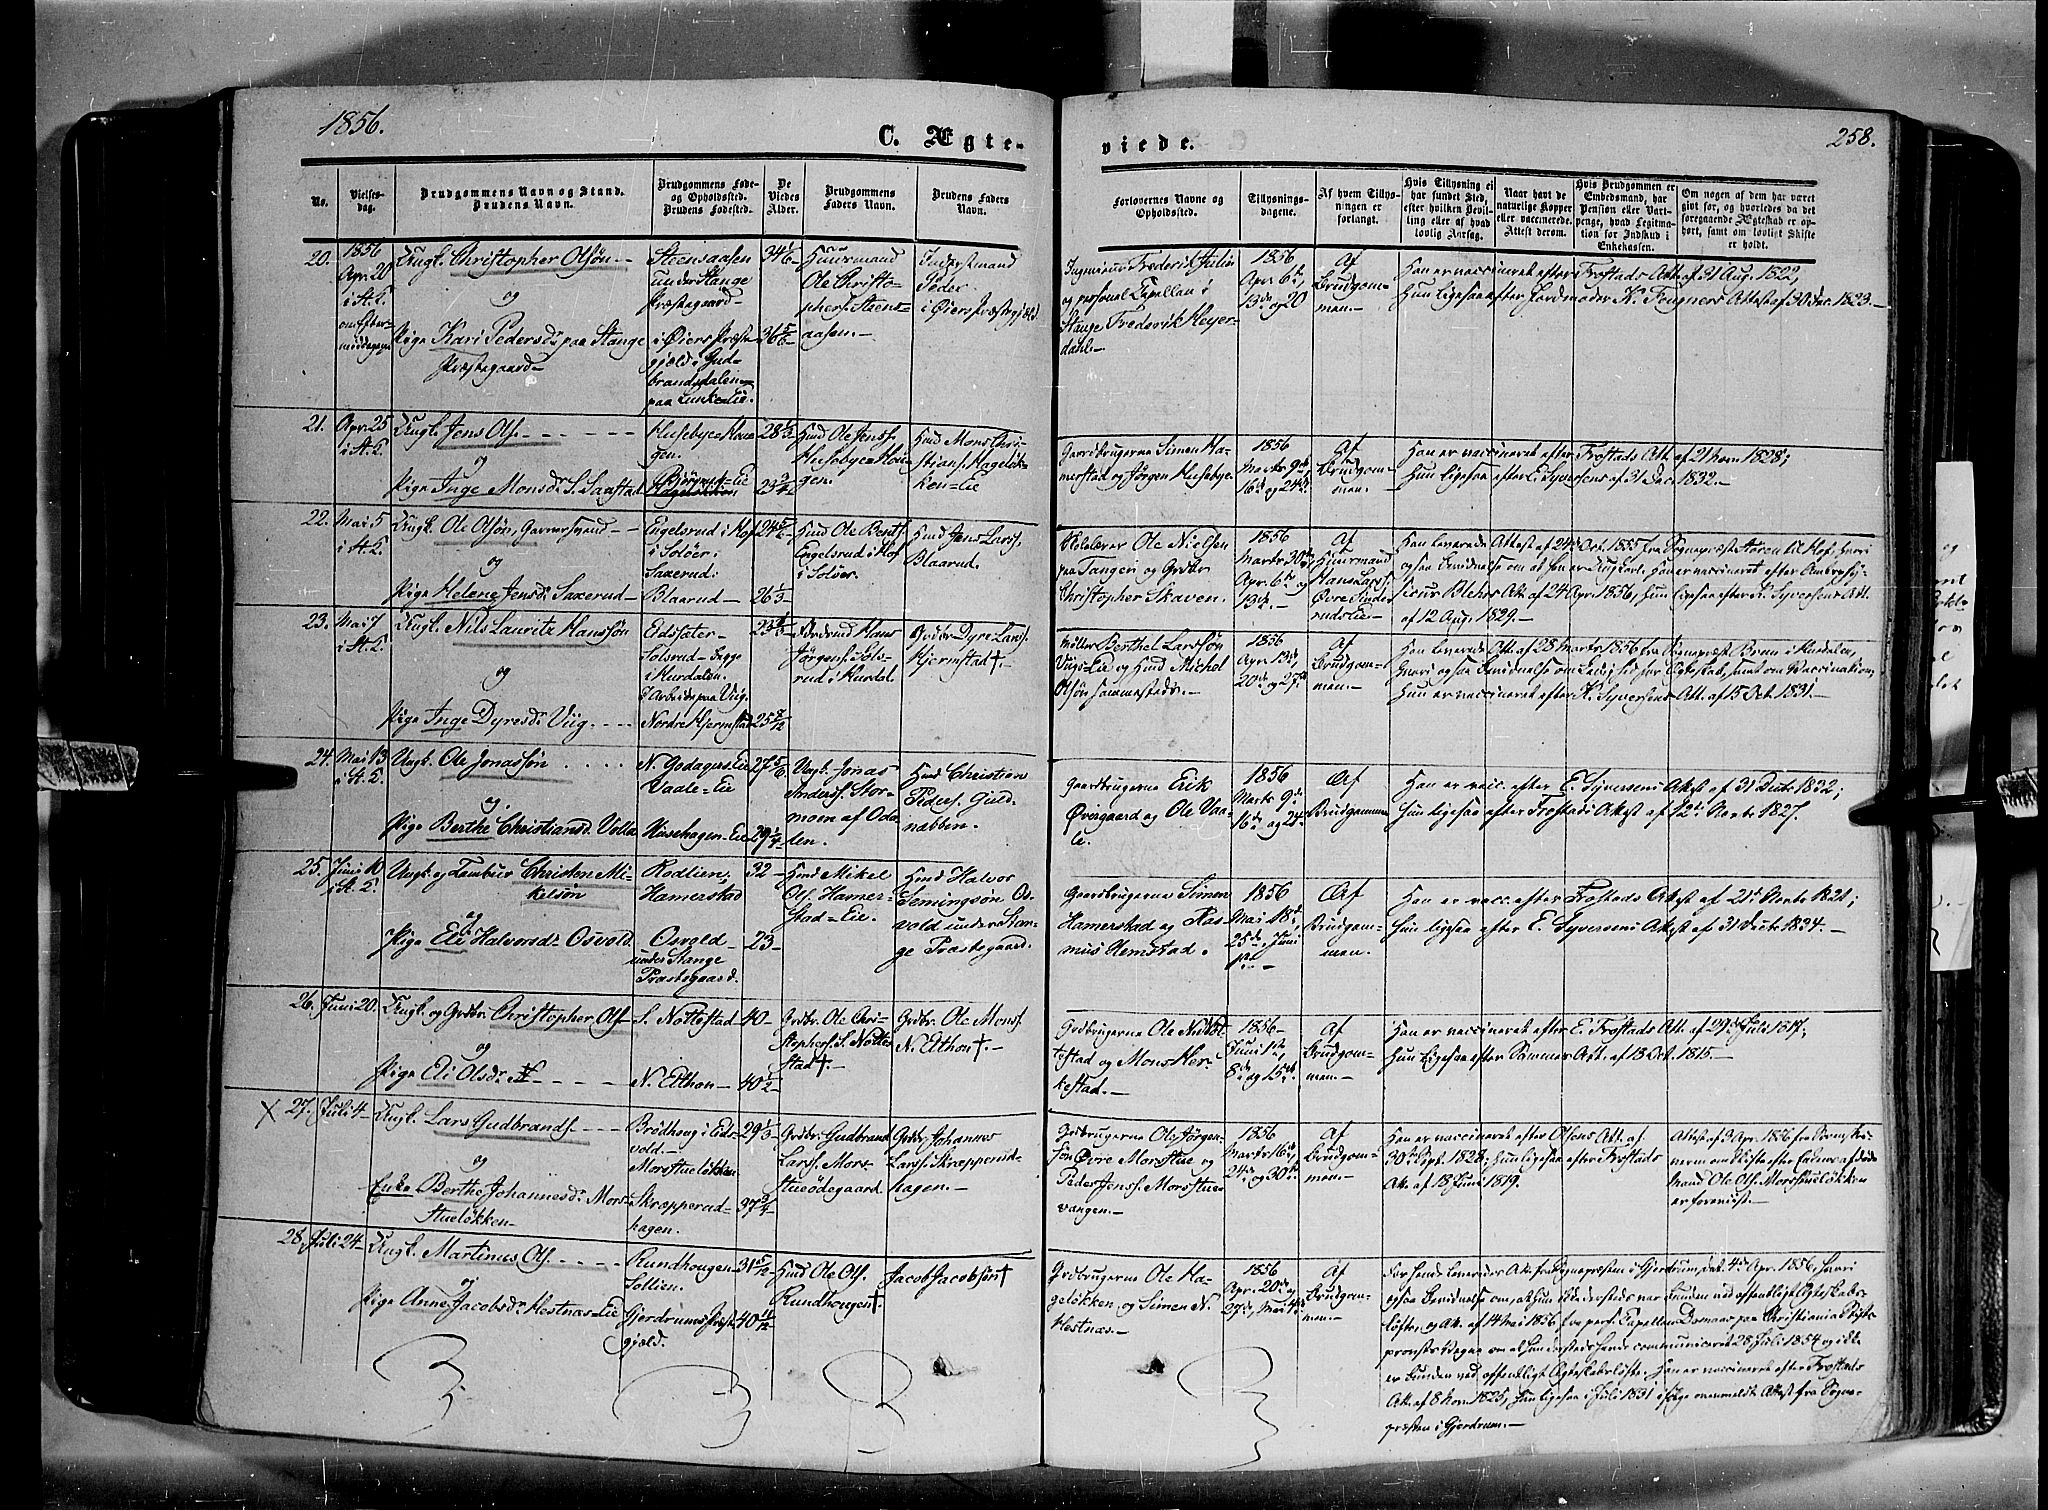 1856.
C. Ægte-
viede.
258.
No.
Vielses-
dag.
Brudgommens Navn og Stand.
Brudens Navn.
Brudgommens Føde-
og Opholdssted.
Brudens Fødested.
De
Viedes
Alder.
Brudgommens
Faders Navn.
Brudens Faders
Navn.
Forlovernes Navne og
Opholdssted.
Tillysnings-
dagene.
Af hvem Tillys-
ningen er
forlangt.
Hvis Tillysning ei
har fundet Sted,
efter hvilken Bevil-
ling eller af hvad
lovlig Aarsag.
Naar havt de
naturlige Kopper
eller vaccinerede.
Attest derom.
Hvis Brudgommen er
Embedsmand, har
Pension eller Vart-
penge, hvad Legitima-
tion for Indskud i
Enkekassen.
Om nogen af dem har været
gift før, og hvorledes da det
foregaaende Ægteskab er op-
hørt, samt om lovligt Skifte
er holdt.
20.
1856
Apr. 20
i St. K.
om Efter-
middagen
Ungk. Christopher Olsøn
og
Pige Kari Pedersd. paa Stange
Præstegaard
Steensaasen
under Stange
Præstegaard
i Øiers Præste-
gjeld i Gud-
brandsdalen
34 1/6
36 5/6
Huusmand
Ole Christo-
phers. Steens-
aasen.
Inderstmand
Peder
i Øiers Præstegjeld
Frederik Julin
og personel Capellan i
Stange Frederik Heyer-
dahl.
1856
Apr. 6te,
13de og 20
Af
Brudgom-
men.
Han er vaccineret efter Frostads Att. af 31 Aug. 1822,
Hun ligesaa efter Jordmoder K. Feugners Attest af 30 Dec. 1823.
21.
Apr. 25
i St. K.
Ungk. Jens Ols.
og
Pige Inge Monsd. S. Saastad
Husebye Hou-
gen.
28 1/3
23 3/4
Hmd Ole Jens.
Husebye Hou-
gen.
Hmd Mons Chri-
stians. Hageløk-
ken Eie
Gaardbrugerne Simen Ha-
merstad og Jørgen Husebye.
1856
Marts 9de,
16de og 24de
Af
Brudgom-
men.
Han er vaccineret efter Frostads Att. af 21 Nov. 1828;
Hun ligesaa efter E. Syversens af 31 Dec. 1832.
22.
Mai 5
i St. K.
Ungk. Ole Olsøn, Garversvend
og
Pige Helene Jensd. Saxerud
Engelsrud i Hof
i Soløer.
Saxerud.
Blaarud
24 5/6
26 1/3
Hmd Ole Bernts.
Engelsrud i Hof
i Soløer.
Hmd Jens Lars.
Blaarud.
Ole Nielsen
paa Tangen og Grdbr
Christopher Skaven.
1856
Marts 30te,
Apr. 6te og
13de
Af
Huusmand
Hans Lars.
Øvre Sinde-
rudsEie
Han leverede Attest af 24de Oct. 1855 fra Sognepræst Aaren til Hof, hvori
af 24 Apr. 1856, Hun ligesaa efter E. Syversens Att.
af 12 Aug. 1829.
23.
Mai 7
i St. K.
Ungk. Nils Lauritz Hanssøn
og
Pige Inge Dyresd. Viig.
Edssater
Solsrud begge
i Hurdalen.
I Arbeide paa Viig.
Nordre Hjermstad
25 8/12
Hans
Jørgens. Sols-
rud i Hurdal
Grdbr. Dyre Lars.
Hjermstad †.
Møller Berthel Larssøn
Viigs-Eie og Hmd Michel
Olsøn sammesteds.
1856
Apr. 13de,
20de og 27de
Af
Brudgom-
men.
Han leverede Att. af 28 Marts 1856 fra Sognepræst Bruun i Hurdalen,
Hun er vaccineret efter E. Syversens Att. af 15 Oct. 1831.
24.
Mai 13
i St. K.
Ungk. Ole Jonassøn
og
Pige Berthe Christiansd. Volla
N. Opdagers-Eie
Vaale-Eie
Husehagen-Eie
27 5/6
29 1/4
Ungk. Jonas
Anders. Stor-
moen af Oda-
len.
Hmd Christian
Peders. Guld-
nabben.
Gaardbrugerne Erik
Øvregaard og Ole Vaa-
le.
1856
Marts 9de,
16de og 24de
Af
Brudgommen
Han er vacc. efter E. Syversens Attest af 31 Decbr. 1832;
Hun ligesaa efter Frostads Attest af 12te Marts 1827.
25.
Juni 10
i St. K.
Ungk. og Tambur Christen Mi-
kelsøn
og
Pige Eli Halvorsd. Osvold
Rodlien,
Hamerstad
Osvold
under Stange
Præstegaard.
32
23
Hmd Mikel
Ols. Hamer-
stad-Eie.
Hmd Halvor
Semingsøn Os-
vold under Stan-
ge Præstegaard.
Gaardbrugerne Simen
Hamerstad og Ras-
mus Hemstad.
1856
Mai 18de,
25de, Juni
1ste
Af
Brudgom-
men.
Han er vacc. efter Frostads Attest af 21de Marts 1821;
Hun ligesaa efter E. Syversens Attest af 31 Decbr. 1834.
26.
Juni 20.
Ungk. og Grdbr. Christopher Ols.
og
Pige Eli Olsdr.
S. Nøttestad
N. Elthon
40
40 1/2
Grdbr. Ole Chri-
stophers. S. Nøtte-
stad †.
Grdbr. Ole Mons.
N. Elthon †.
Grdbrugerne Ole Nøtte-
stad og Mons Her-
kestad.
1856
Juni 1ste,
8de og 15de
Af
Brudgom-
men.
Han er vaccineret efter E. Frostads Att. af 29de Juli 1817;
Hun ligesaa efter Sommer Att. af 13 Oct. 1815.
X 27.
Juli 4
Ungk. Lars Gudbrands.
og
Enke Berthe Johannesd. Mors-
tueløkken
Brødhoug i Eids-
vold.
Morstueløkken
Skrepperud-
hagen.
29 1/3
37 3/4
Grdbr. Gudbrand
Lars. Mors-
tueødegaard
Grdbr. Johannes
Lars. Skrepperud-
hagen.
Grdbrugerne Ole Jørgen-
søn Øvre Morstue og
Peder Jens. Morstue-
vangen.
1856
Marts 16de,
24de og 30te
Af
Brudgom-
men.
Han er vaccineret efter Olsens Att. af
30te Sept. 1828; Hun ligesaa efter Frostads
Att. af 18 Juni 1819.
Attest af 3 Apr. 1856 fra
om Skifte efter Enkens afdøde
Mand Ole Ols. Morstueløkken
er foreviist.
28.
Juli 24
Ungk. Martinus Ols.
og
Pige Anne Jacobsd. Hestnæs-Eie
Rundhougen
Sollien.
Gjerdrums Præste-
gjeld.
31 5/12
40 11/12
Hmd Ole Ols.
Rundhougen †.
Jacob Jacobsøn †
Grdbrugerne Ole Ha-
geløkken og Simen N.
Hestnæs.
1856
Apr. 20de og
27de, Mai 4de
Af
Brudgom-
men.
For Hende leveredes Att. fra Sognepræsten i Gjerdrum, dat. 4de Apr. 1856, hvori
ogsaa Beviidnelse om, at Hun ikke dersteds var bunden ved offentligt Ægteskabs-
løfte, og Att. af 14 Mai 1856 fra pers. Capellan Damaas paa Christiania Stifts-
provsts Vegne om at Hun dersteds communicerede 28 Juli 1854 og ikke
er bunden ved offentligt Ægteskabsløfte. Han er vaccineret efter Frostads
Att. af 8 Nov. 1825, Hun ligesaa i Juli 1831 ifølge ommeldte Attest fra Sogne-
præsten i Gjerdrum.